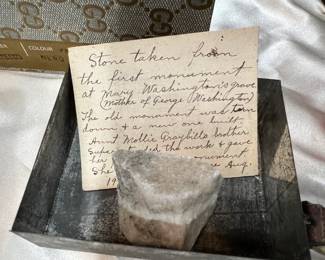 COLOUR
Stone taken from
the first monument
at Mary Washington's grave
(Mother of George Washington)
The old monument was torn
down & a new one built.
Aunt Mollie Graybill's brother
the work & gave
her monument.
She Aug.
19